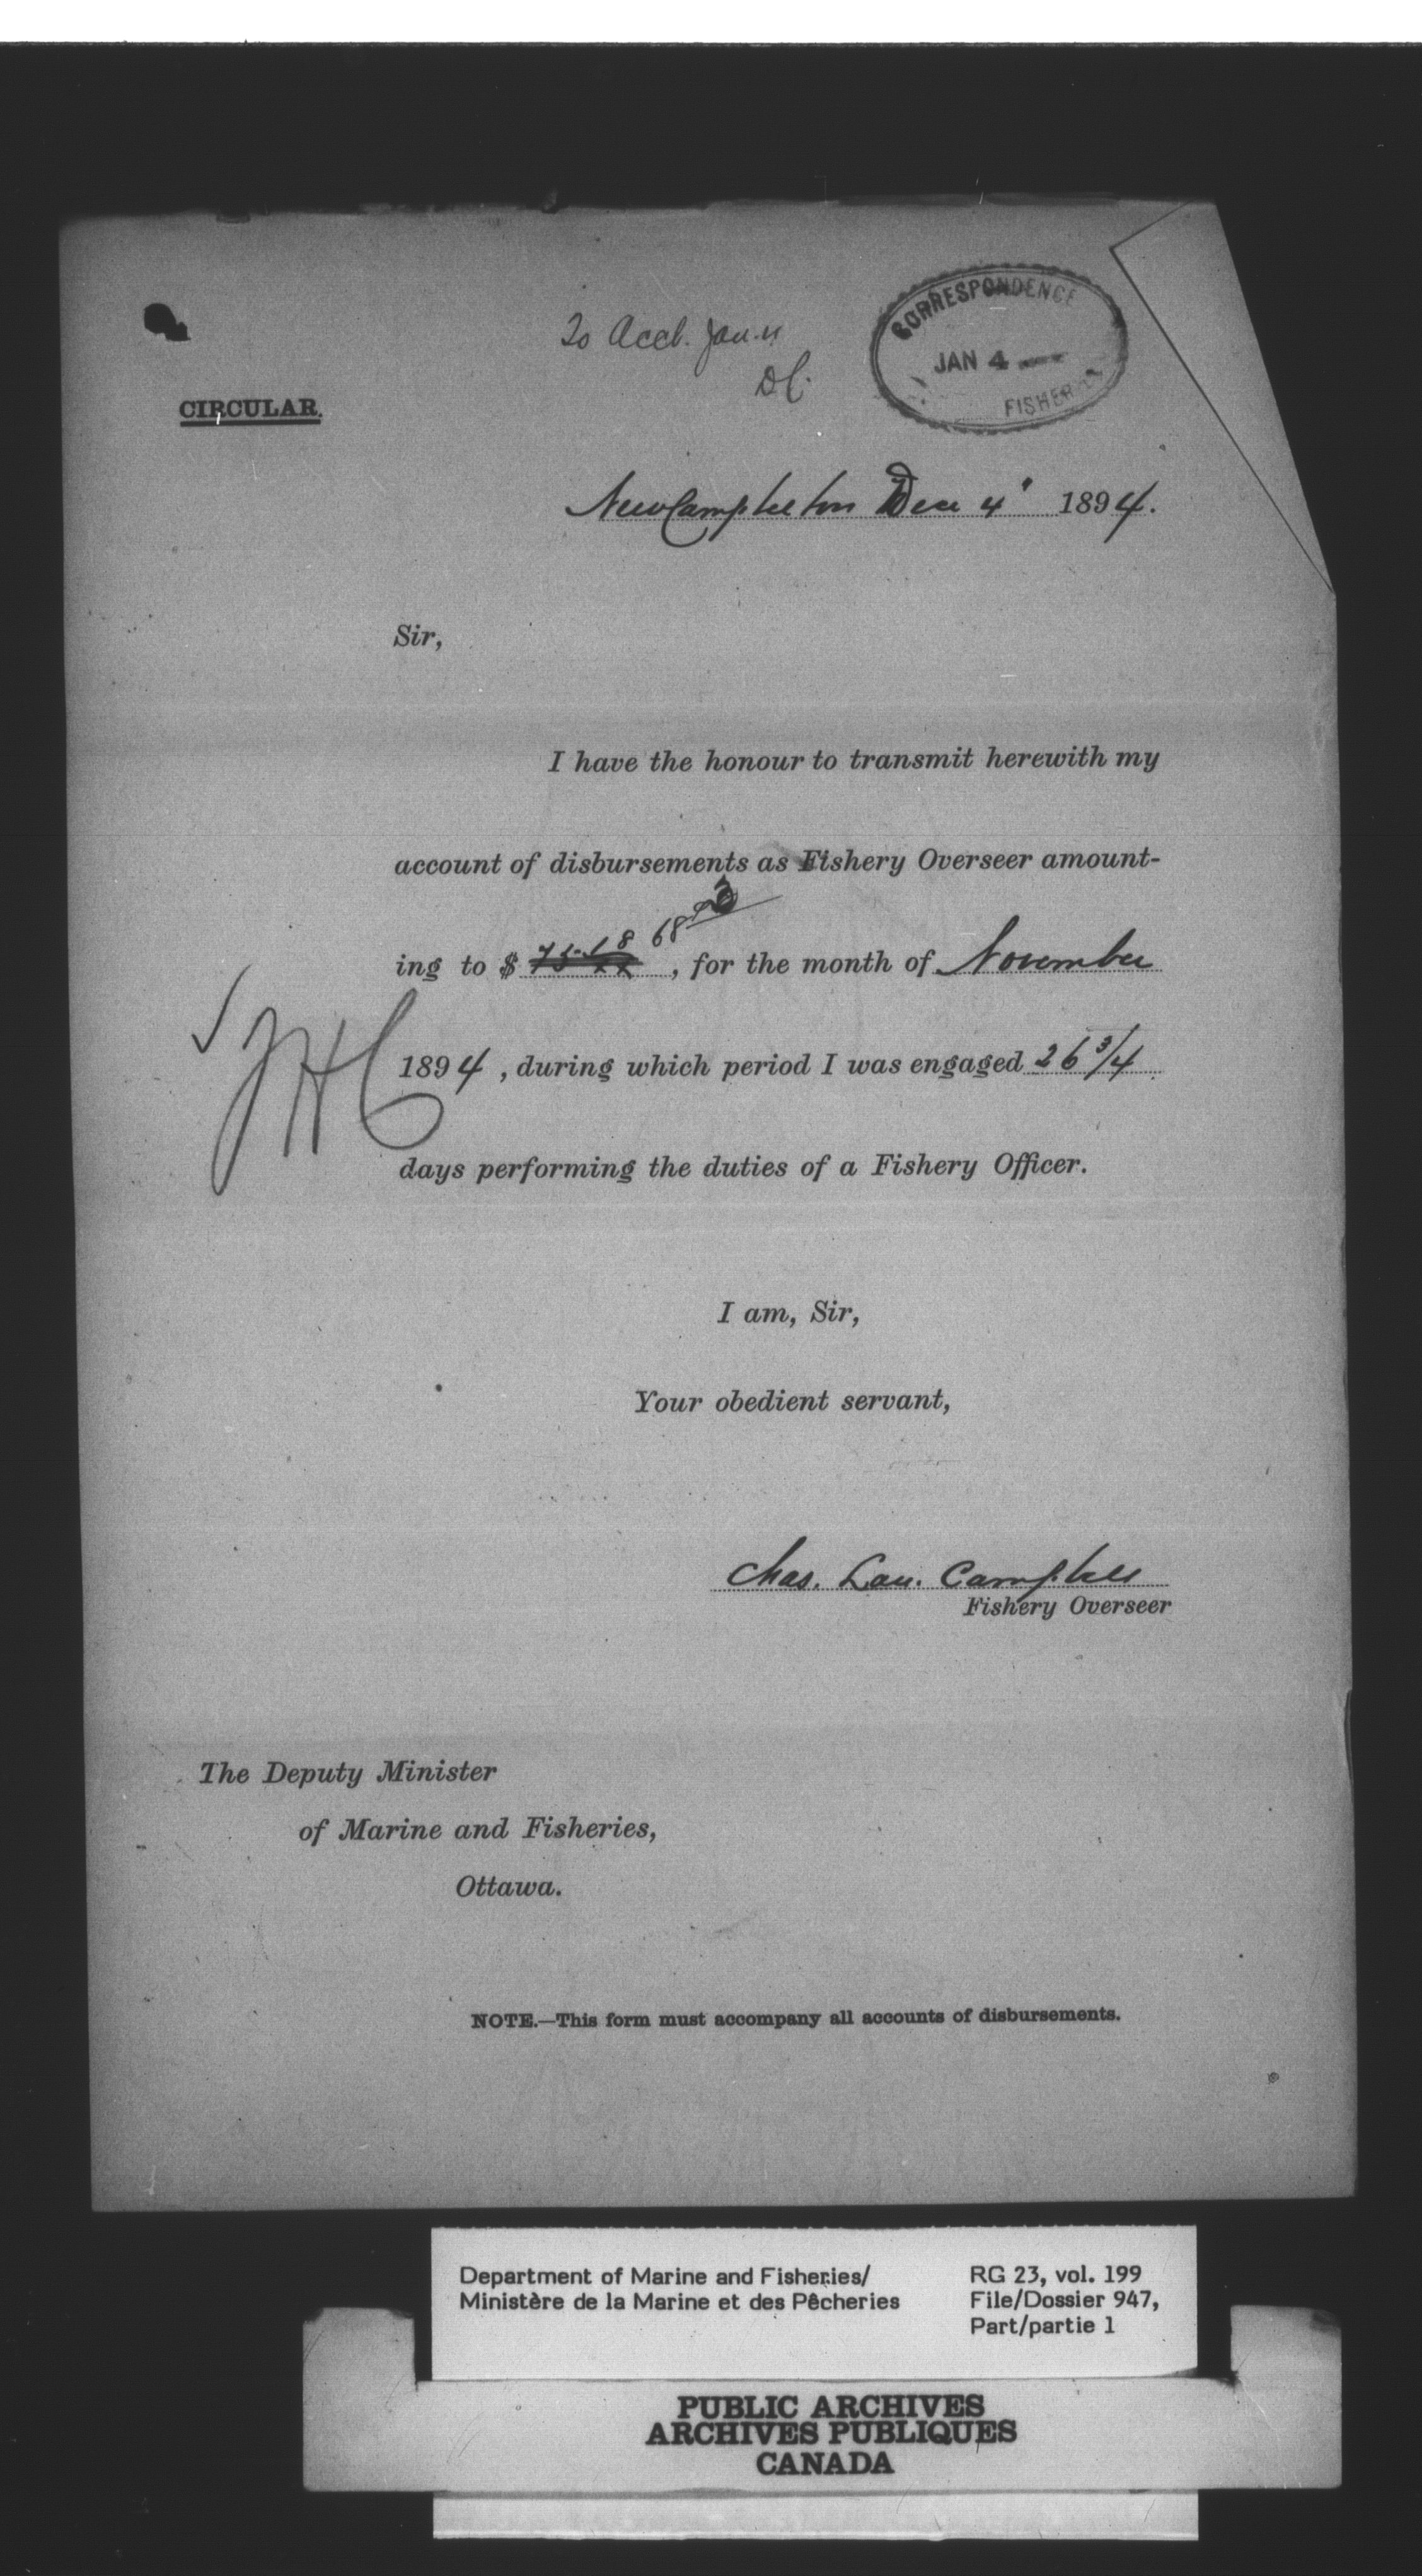 To Acct. Jan. 4
CORRESPONDENCE
JAN 4
FISHERIES
CIRCULAR.
New Campbelton Dec 4" 1894.
Sir,
I have the honour to transmit herewith my
account of disbursements as Fishery Overseer amount-
ing to $ 68, for the month of November
1894, during which period I was engaged 26 3/4
days performing the duties of a Fishery Officer.
I am, Sir,
Your obedient servant,
Chas. Lau. Campbell
Fishery Overseer
The Deputy Minister
of Marine and Fisheries,
Ottawa.
NOTE.—This form must accompany all accounts of disbursements.
Department of Marine and Fisheries/
Ministère de la Marine et des Pêcheries
RG 23, vol. 199
File/Dossier 947,
Part/partie 1
PUBLIC ARCHIVES
ARCHIVES PUBLIQUES
CANADA